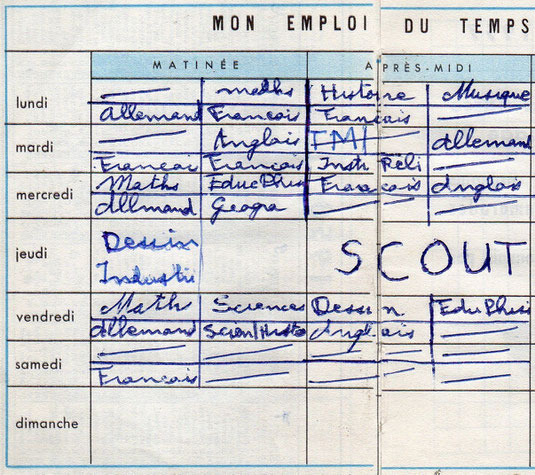 MON EMPLOI DU TEMPS
MATINÉE APRÈS-MIDI
lundi — maths Histoire Musique
Allemant Francois Francais —
mardi — Anglais EMI Allemand
Francai Francais Instr Reli —
mercredi Maths Educ Phis Francais Anglais
Allmand Geogra — —
jeudi Dessin SCOUT
Industri
vendredi Math Sciences Dessin Edu Phisi
Allemand Scien/Histo Anglais —
samedi — — — —
Francais — — —
dimanche